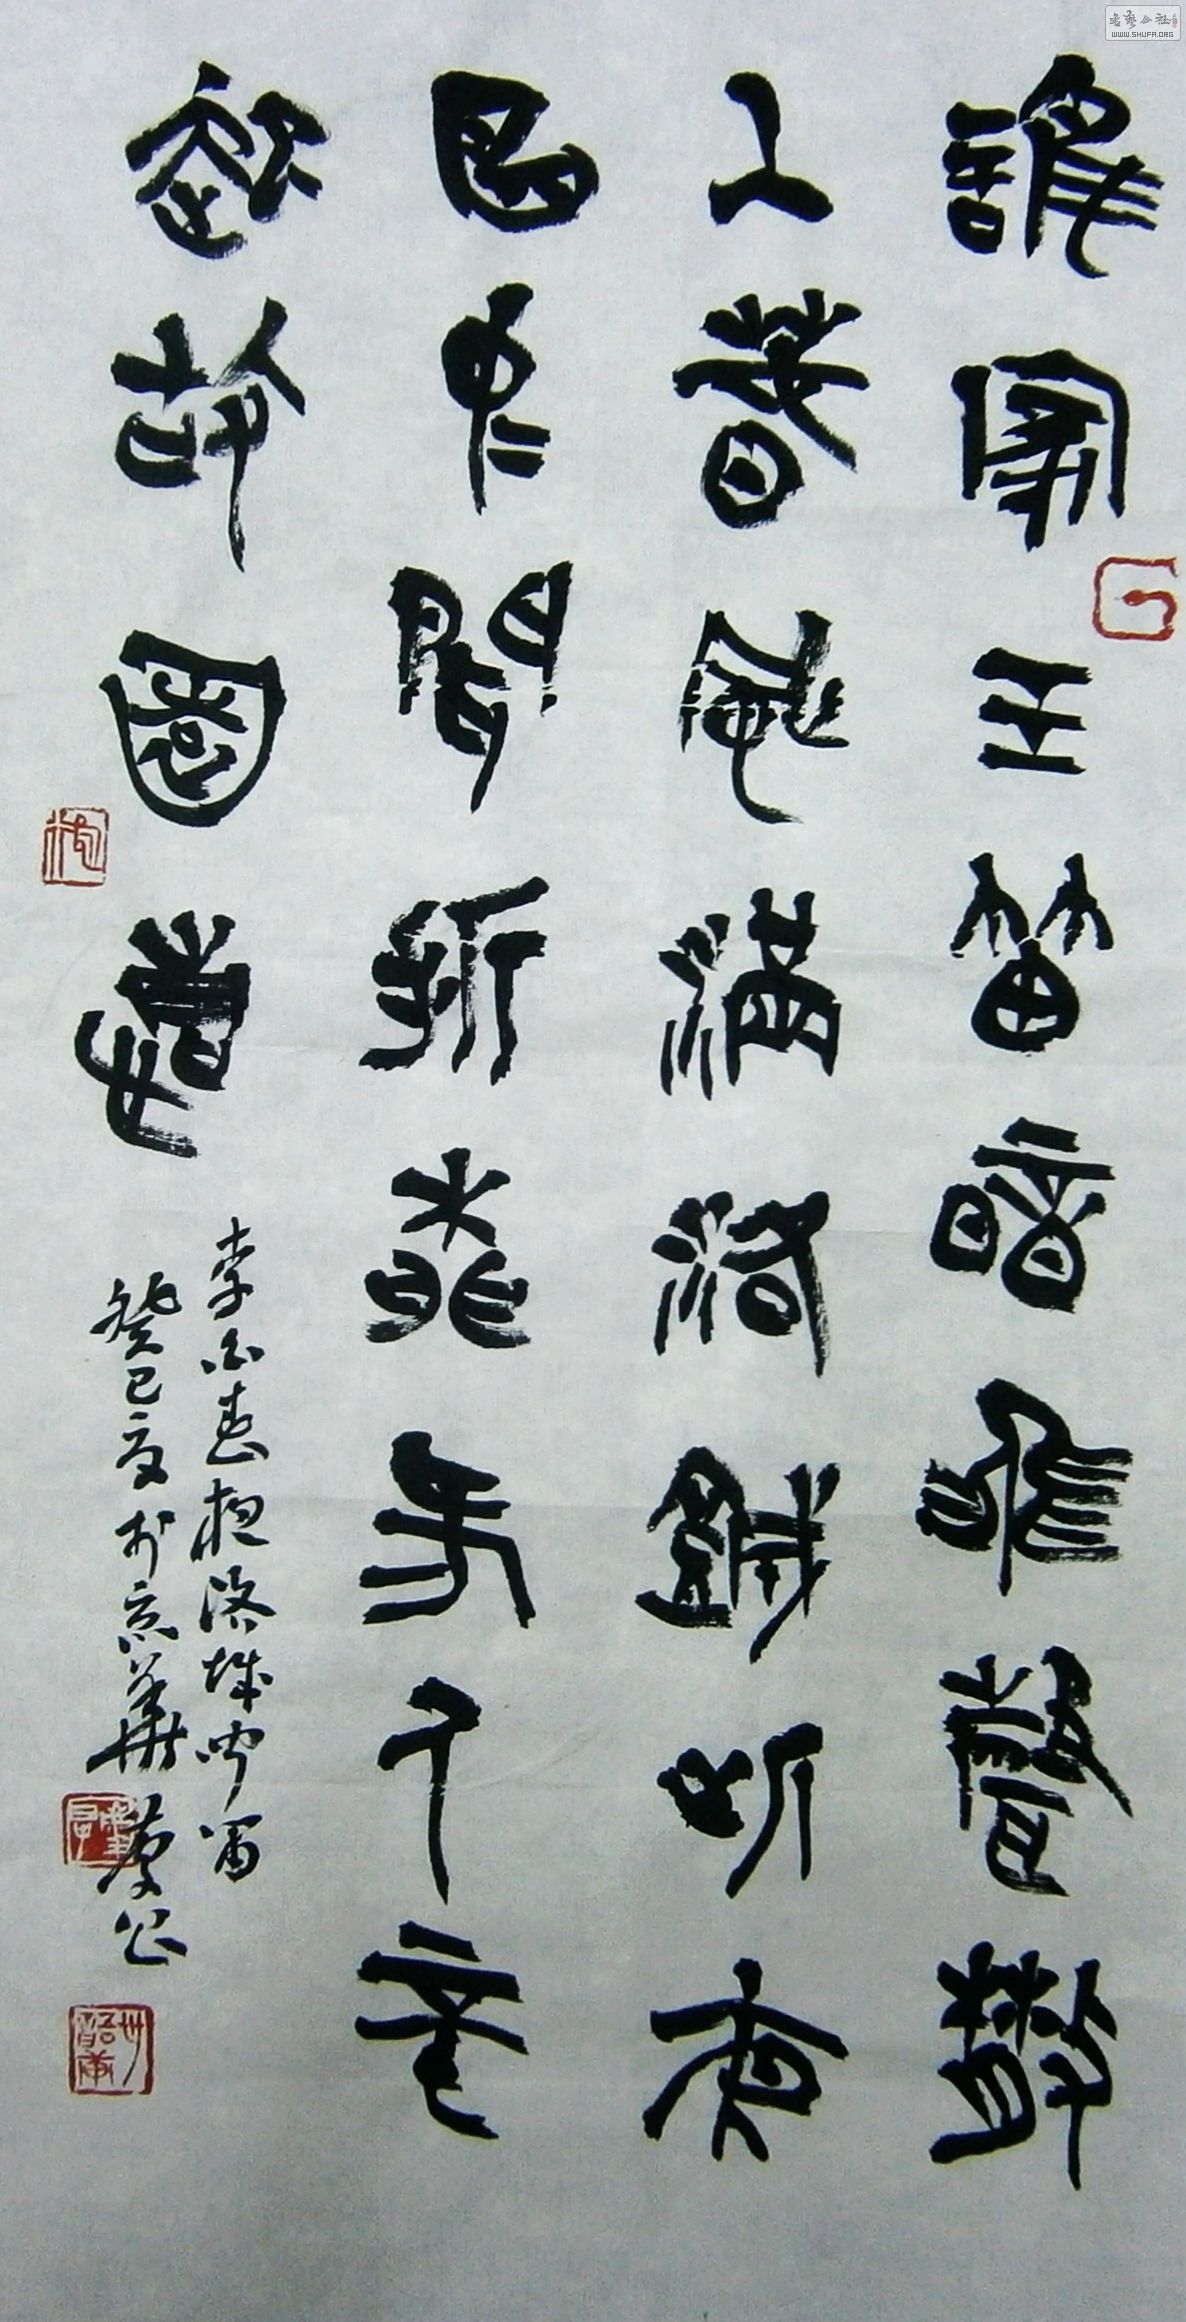 誰家玉笛暗飛聲散
入春風滿洛城此夜
曲中聞折柳何人不
起故園情
李白春夜洛城聞笛
癸巳夏於京華慶公
書藝公社
WWW.SHUFA.ORG